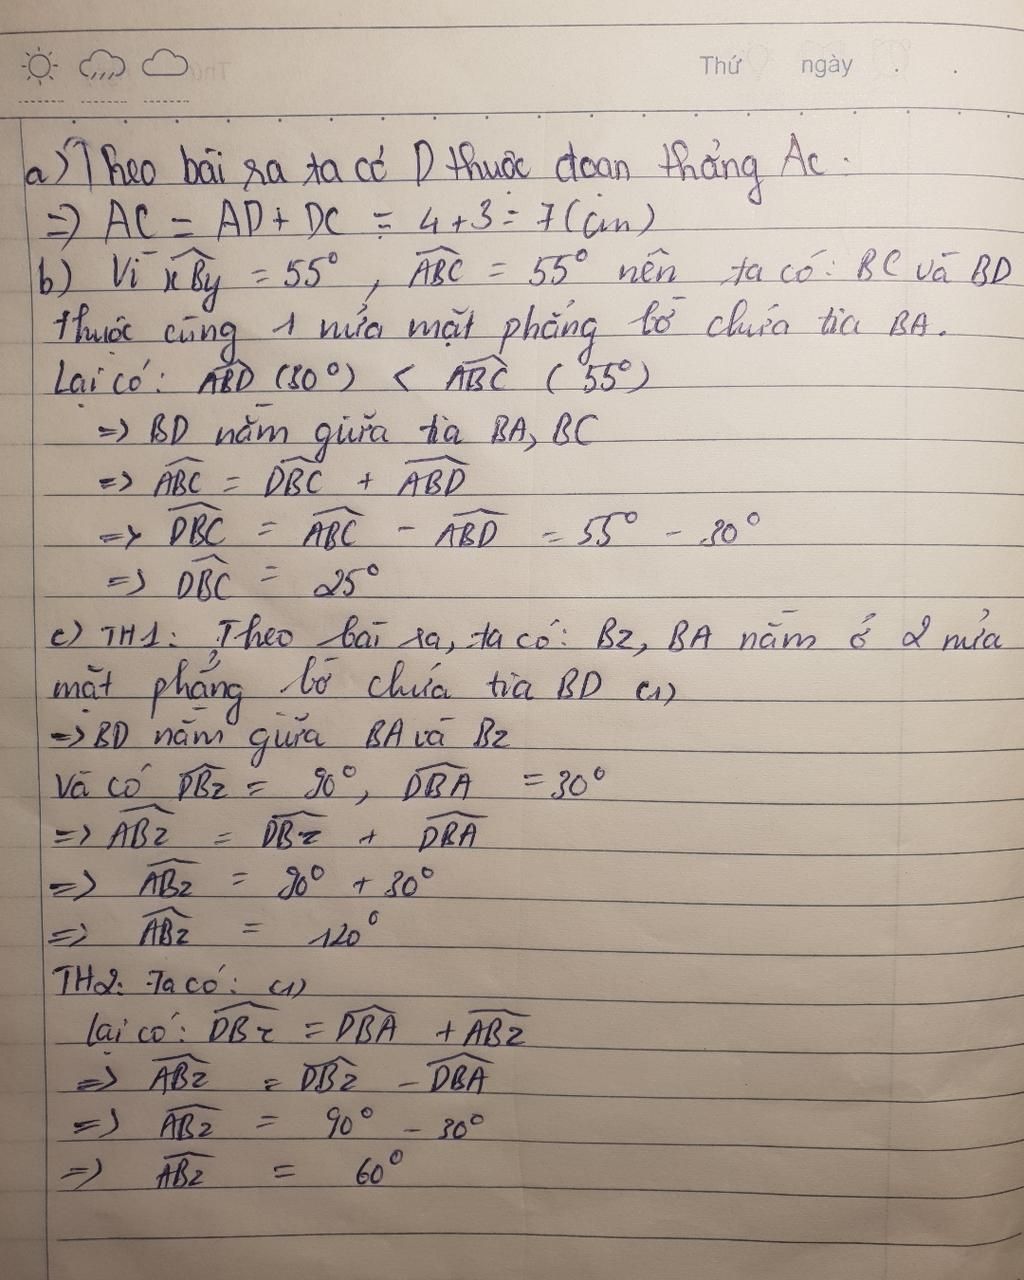 Thứ ngày
a) Theo bài ra ta có D thuộc đoạn thẳng AC.
=> AC = AD + DC = 4 + 3 = 7 (cm)
b) Vì xBy = 55°, ABC = 55° nên ta có: BC và BD
thuộc cùng 1 nửa mặt phẳng bờ chứa tia BA.
Lại có: ABD (30°) < ABC (55°)
=> BD nằm giữa tia BA, BC
=> ABC = DBC + ABD
=> DBC = ABC - ABD = 55° - 30°
=> DBC = 25°
c) TH1: Theo bài ra, ta có: Bz, BA nằm ở 2 nửa
mặt phẳng bờ chứa tia BD (1)
=> BD nằm giữa BA và Bz
Và có DBz = 90°, DBA = 30°
=> ABz = DBz + DBA
=> ABz = 90° + 30°
=> ABz = 120°
TH2: Ta có: (1)
Lại có: DBz = DBA + ABz
=> ABz = DBz - DBA
=> ABz = 90° - 30°
=> ABz = 60°